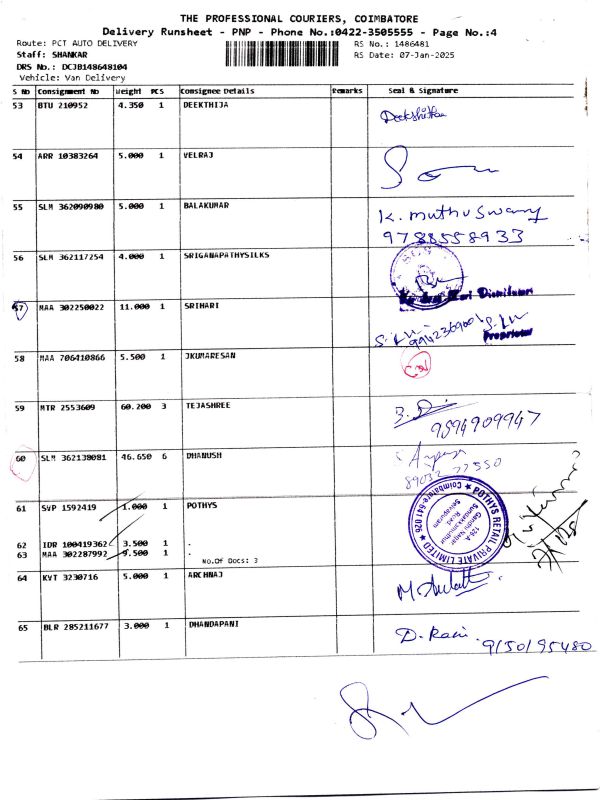 THE PROFESSIONAL COURIERS, COIMBATORE
Delivery Runsheet - PNP - Phone No.:0422-3505555 - Page No.:4
Route: PCT AUTO DELIVERY RS No.: 1486481
Staff: SHANKAR RS Date: 07-Jan-2025
DRS No.: DCJB148648104
Vehicle: Van Delivery
S No Consignment No Weight PCS Consignee Details Remarks Seal & Signature
53 BTU 210952 4.350 1 DEEKTHIJA
54 ARR 10383264 5.000 1 VELRAJ
55 SLM 362090980 5.000 1 BALAKUMAR K. muthuswamy
9788558933
56 SLM 362117254 4.000 1 SRIGANAPATHYSILKS
57 MAA 302250022 11.000 1 SRIHARI
Proprietor
58 MAA 706410866 5.500 1 JKUMARESAN
59 MTR 2553609 60.200 3 TEJASHREE
9594909947
60 SLM 362138081 46.650 6 DHANUSH
61 SVP 1592419 1.000 1 POTHYS
POTHYS RETAIL PRIVATE LIMITED ★ Coimbatore-641 026 ★
62 IDR 100419362 3.500 1 .
63 MAA 302287992 9.500 1 .
No.Of Docs: 3
64 KVT 3230716 5.000 1 ARCHNAJ
65 BLR 285211677 3.000 1 DHANDAPANI D. Rani
9150195480